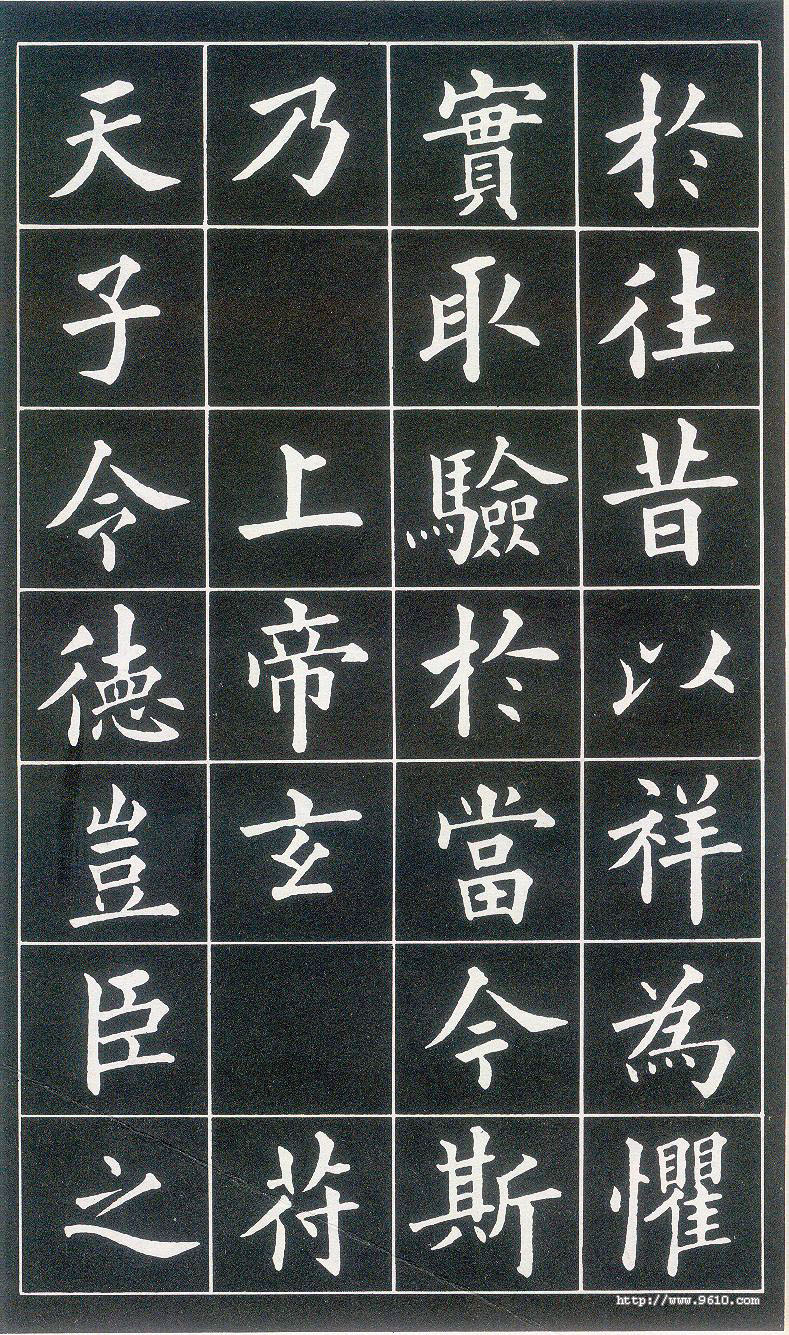 於往昔以祥為懼
實取驗於當今斯
乃上帝玄符
天子令德豈臣之
http://www.9610.com